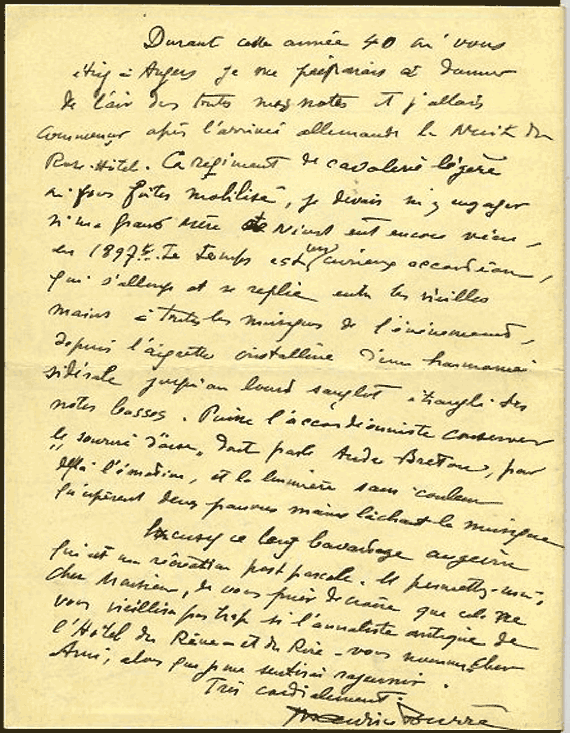 Durant cette année 40 où vous
étiez à Angers je me préparais à donner
de l'air des toutes mes notes et j'allais
commencer après l'arrivée allemande la Nuit du
Rose-Hôtel. Ce régiment de cavalerie légère
vous fûtes mobilisé, je devais m'y engager
si ma Grand Mère de Niort eut encore vécu,
en 1897. Le temps est un curieux accordéon,
qui s'allonge et se replie entre les vieilles
mains à toutes les musiques de l'événement,
depuis l'aigrette cristalline d'une harmonie
sidérale jusqu'au lourd sanglot étranglé des
notes basses. Puisse l'accordéoniste conserver
le sourire dont parle André Breton, par
delà l'émotion, et la lumière sans couleur
deux pauvres mains lâchant la musique
Excusez ce long bavardage angevin
qui est une récréation post pascale. Et permettez-moi,
cher Monsieur, de vous prier de croire que cela ne
vous vieillira pas trop si l'annaliste antique de
l'Hôtel du Rêve - et du Rire - vous nomme cher
Ami, alors que je me sentirai rajeunir.
Très cordialement.
Maurice Fourré